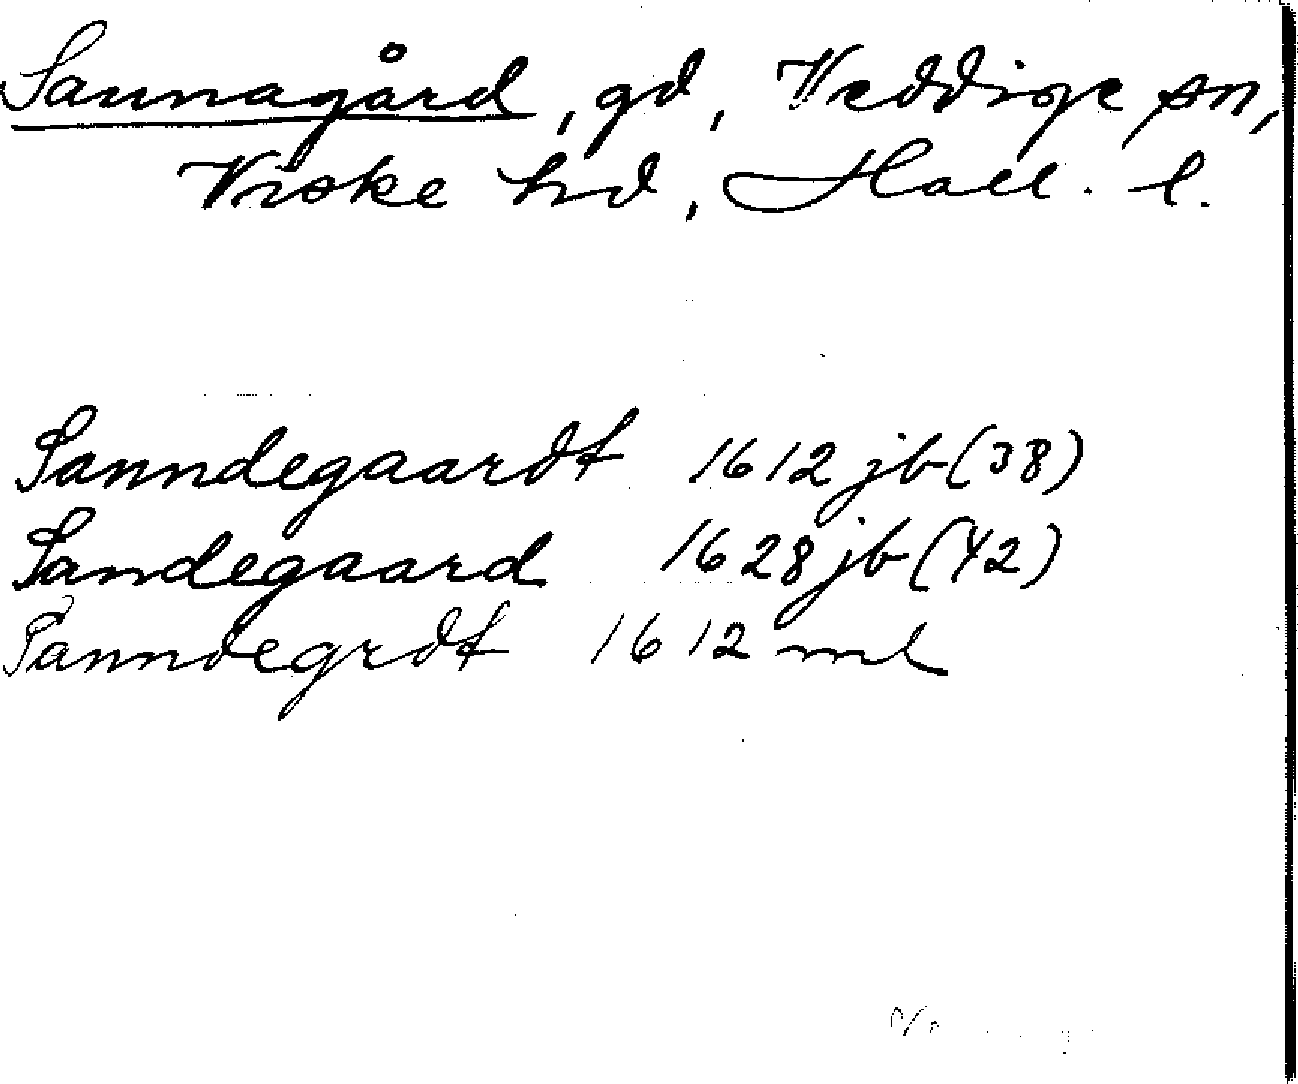 Sannagård, gd, Veddige sn,
Viske hd, Hall. l.
Sanndegaardt 1612 jb (38)
Sandegaard 1628 jb (42)
Sanndegrdt 1612 ml